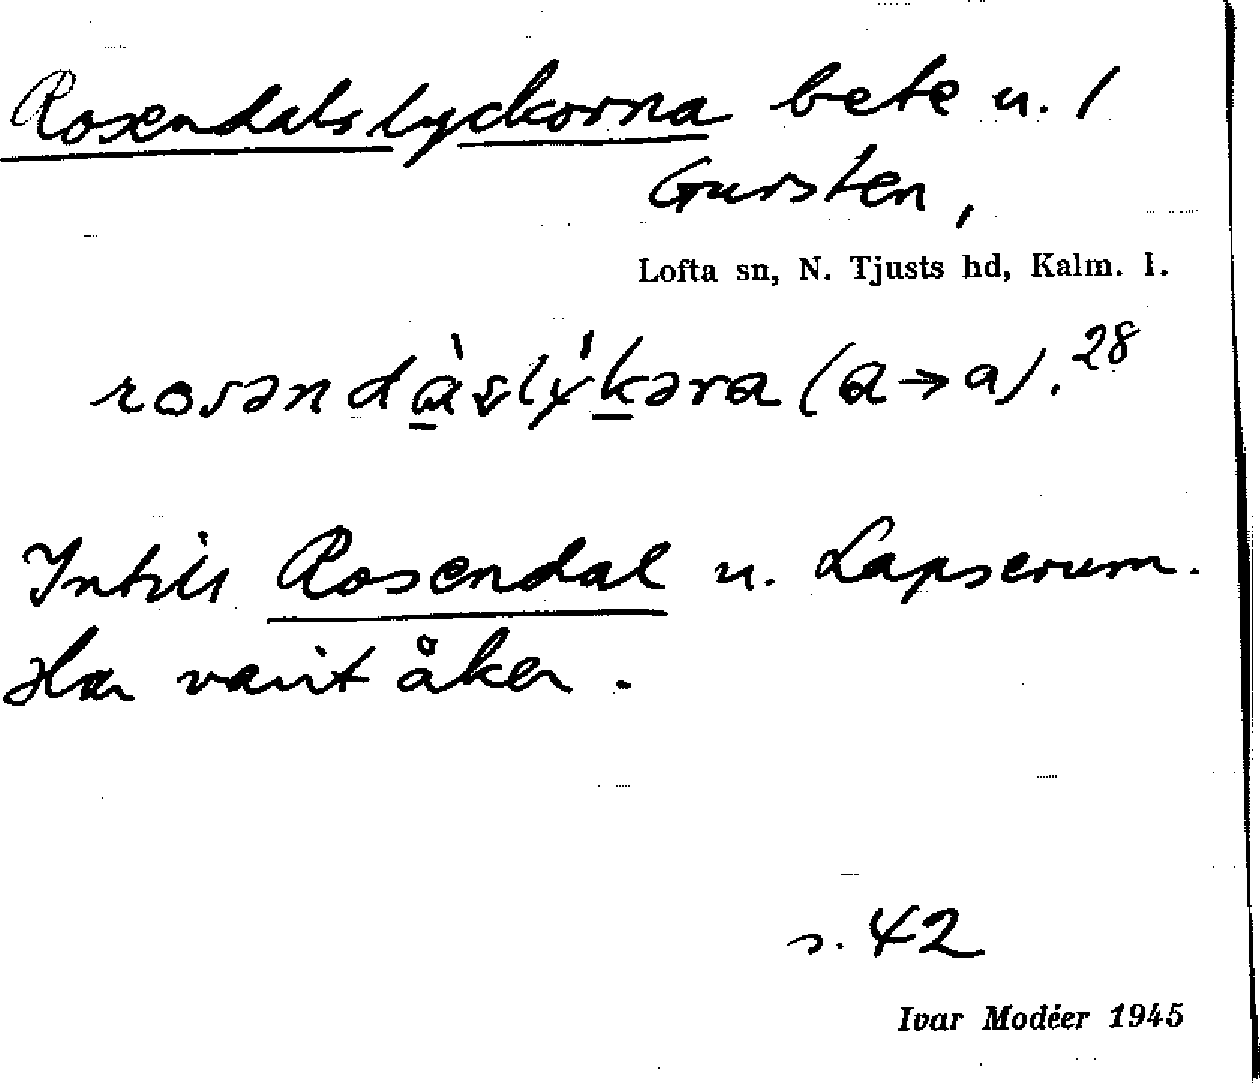 Rosendalslyckorna bete u. 1
Gursten,
Lofta sn, N. Tjusts hd, Kalm. l.
rosəndàslýkəra (a→a).28
Intill Rosendal u. Lapserum.
Har varit åker.
s. 42
Ivar Modéer 1945